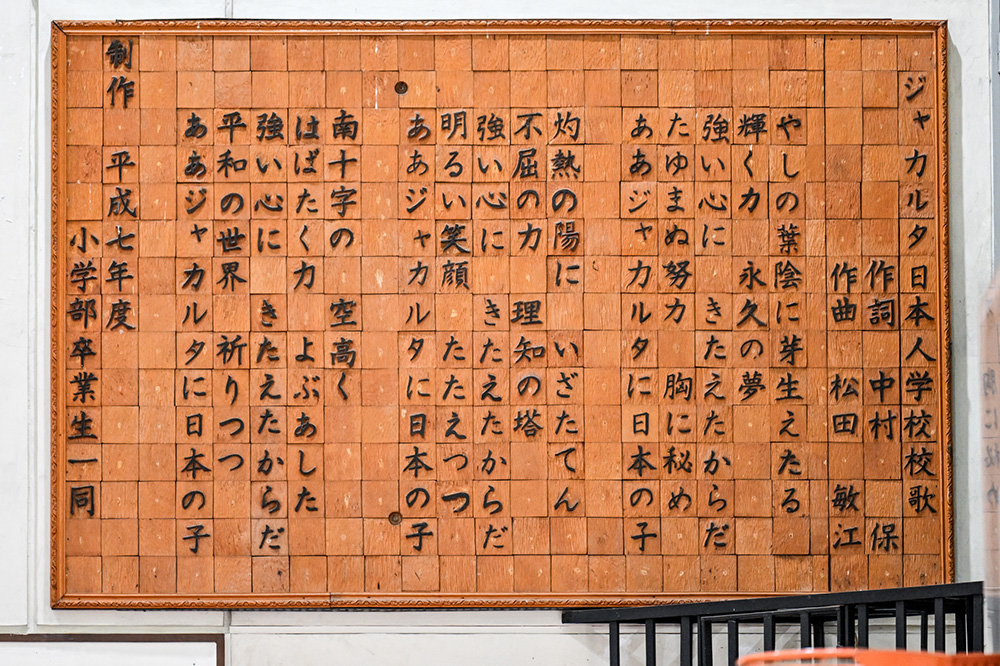 ジャカルタ日本人学校校歌
作詞 中村 保
作曲 松田 敏江
やしの葉陰に芽生えたる
輝く力 永久の夢
強い心に きたえたからだ
たゆまぬ努力 胸に秘め
ああジャカルタに日本の子
灼熱の陽に いざたてん
不屈の力 理知の塔
強い心に きたえたからだ
明るい笑顔 たたえつつ
ああジャカルタに日本の子
南十字の 空高く
はばたく力 よぶあした
強い心に きたえたからだ
平和の世界 祈りつつ
ああジャカルタに日本の子
制作 平成七年度
小学部卒業生一同